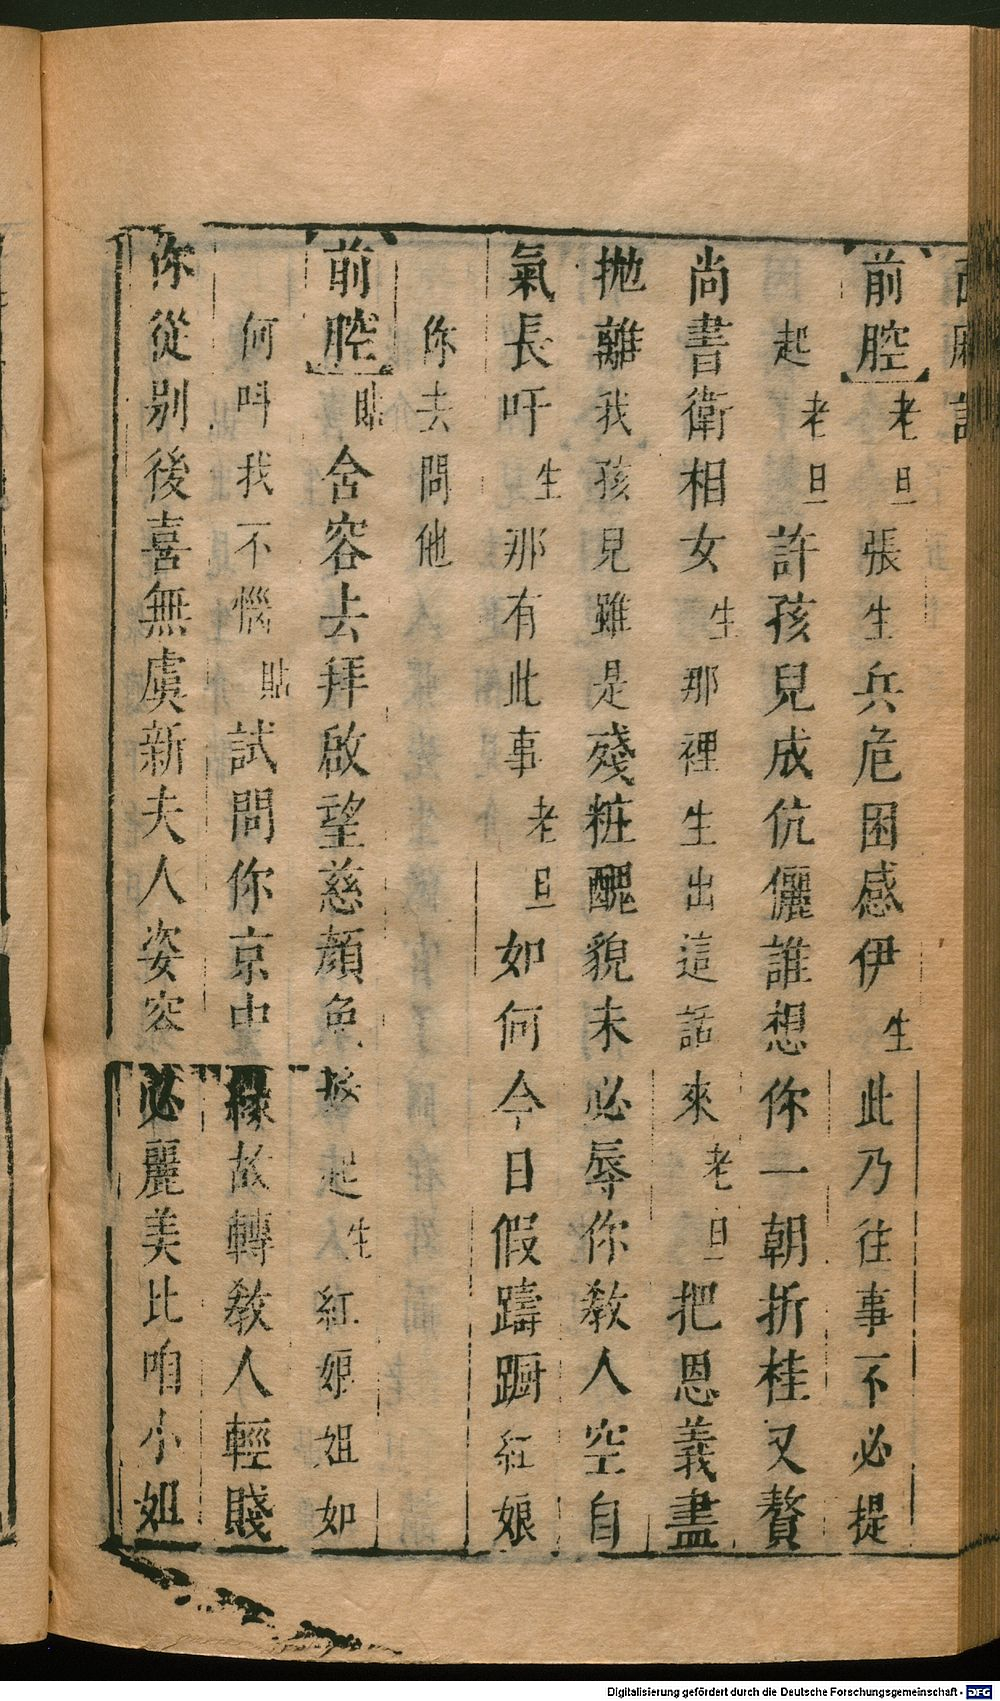 前腔 老旦 張生兵危困感伊 生 此乃往事不必提
起 老旦 許孩兒成伉儷誰想你一朝折桂又贅
尚書衛相女 生 那裡生出這話來 老旦 把恩義盡
拋離我孩兒雖是殘粧醜貌未必辱你教人空自
氣長吁 生 那有此事 老旦 如何今日假躊躕紅娘
你去問他
前腔 貼 含容去拜啟望慈顏免 起 生 紅娘姐如
何呌我不惱 貼 試問你京中緣故轉教人輕賤
你從別後喜無虞新夫人姿容必麗美比咱小姐
Digitalisierung gefördert durch die Deutsche Forschungsgemeinschaft - DFG